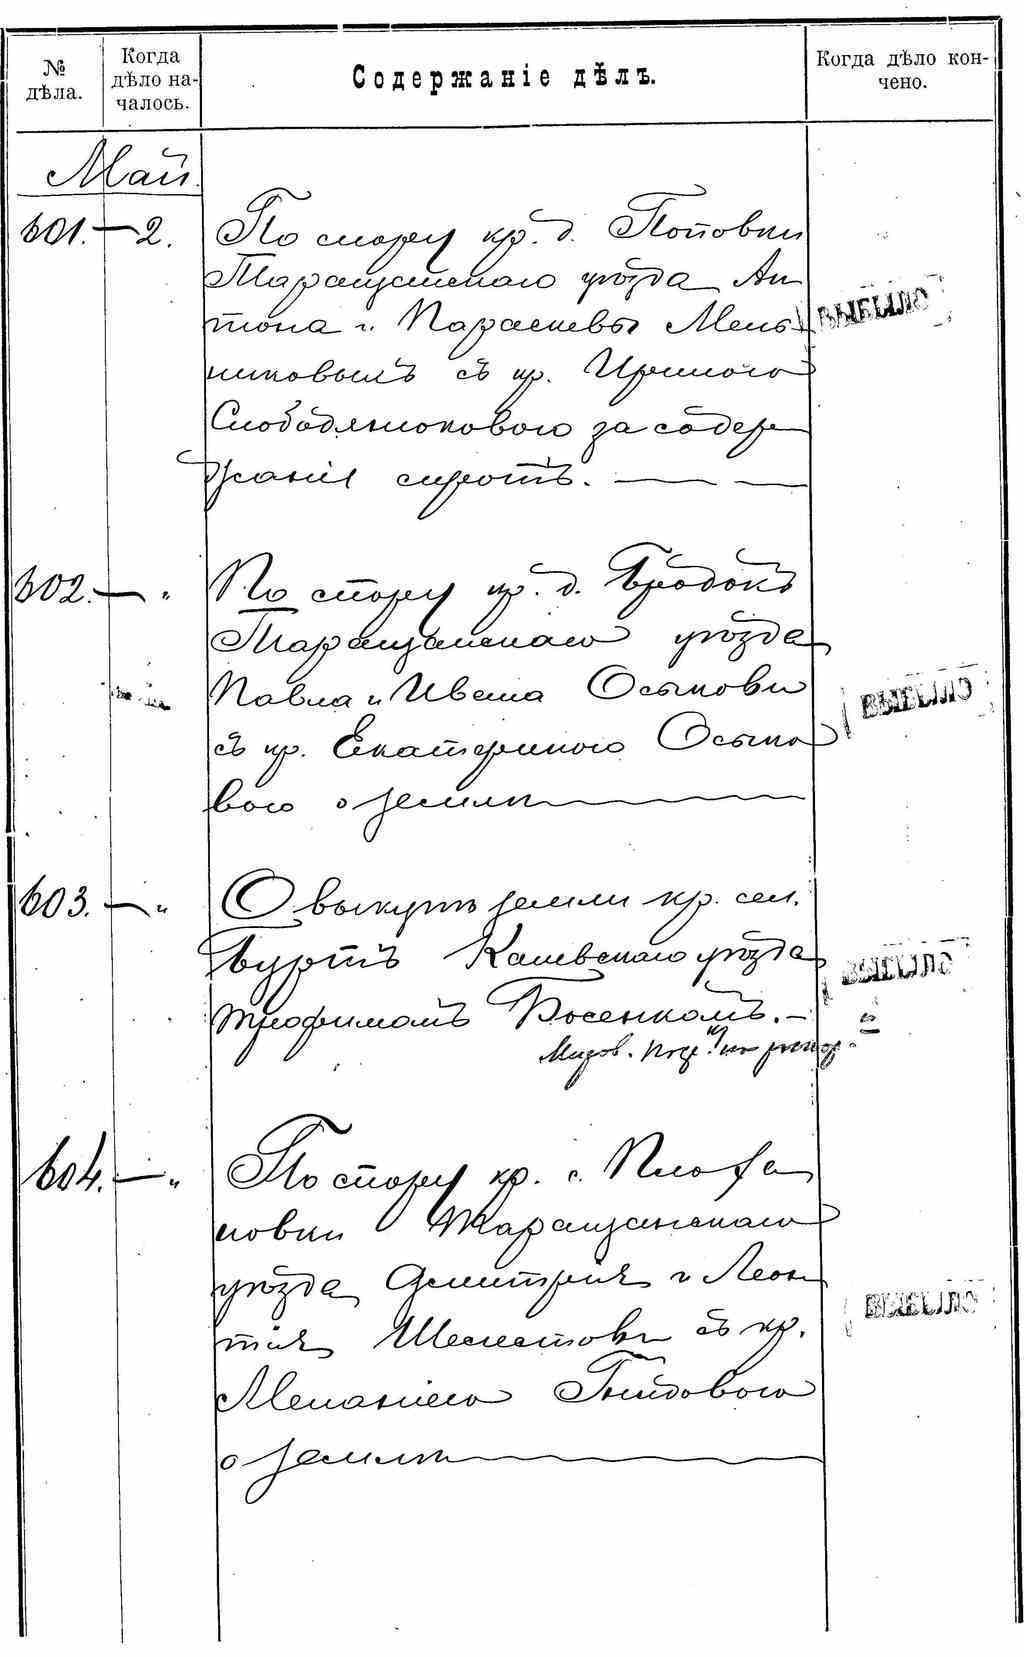 № дѣла.
Когда дѣло на-
чалось.
Содержаніе дѣлъ.
Когда дѣло кон-
чено.
Май.
601. — 2. По спору кр. д. Поповки
Таращанскаго уѣзда Ан
тона и Параскевы Мель
никовыхъ съ кр. Ириною
Слободянюковою за содер
жанія сиротъ. — —
ВЫБЫЛО
602. — „ По спору кр. д. Бродокъ
Таращанскаго уѣзда
Павла и Ивана Осыковы
съ кр. Екатериною Осыко
вою о землѣ
ВЫБЫЛО
603. — „ О выкупѣ земли кр. сел.
Буртъ Каневскаго уѣзда
Трофимомъ Босенкомъ. —
Миров. Поср.
ВЫБЫЛО
604. — „ По спору кр. с. Плоха
новки Таращанскаго
уѣзда Дмитрія и Леон
тія Шелестовы съ кр.
Меланіею Гнидовою
о землѣ
ВЫБЫЛО